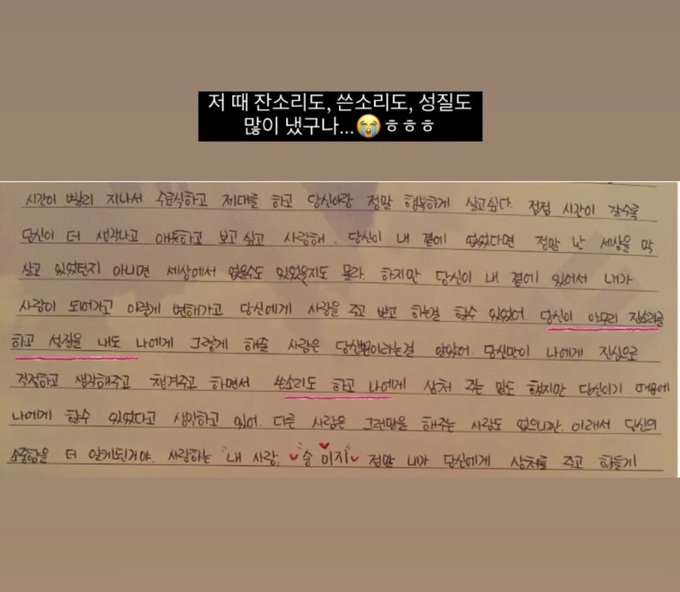 저 때 잔소리도, 쓴소리도, 성질도
많이 냈구나...😭ㅎㅎㅎ
시간이 빨리 지나서 수료식하고 제대를 하고 당신이랑 정말 행복하게 살고싶다. 점점 시간이 갈수록
당신이 더 생각나고 애틋하고 보고 싶고 사랑해. 당신이 내 곁에 없었다면 정말 난 세상을 막
살고 있었던지 아니면 세상에서 없을수도 있었을지도 몰라. 하지만 당신이 내 곁에 있어서 내가
사람이 되어가고 이렇게 변해가고 당신에게 사랑을 주고 받고 하는걸 할수 있었어 당신이 아무리 잔소리를
하고 성질을 내도 나에게 그렇게 해줄 사람은 당신뿐이라는걸 알았어. 당신만이 나에게 진심으로
걱정하고 생각해주고 챙겨주고 하면서 쓴소리도 하고 나에게 상처 주는 말도 했지만 당신이기 때문에
나에게 할수 있었다고 생각하고 있어. 다른 사람은 그런말을 해주는 사람도 없으니깐. 이래서 당신의
소중함을 더 알게된거야. 사랑하는 내 사랑. 송 미지 정말 내가 당신에게 상처를 주고 힘들게